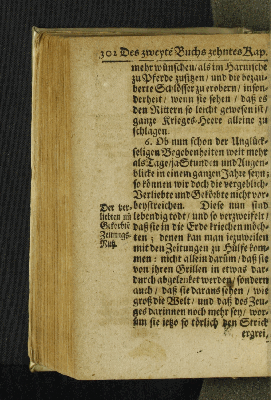 302 Des zweyte Buchs zehntes Kap.
mehr wünschen/ als im Harnische
zu Pferde zusitzen/ und die bezau-
berte Schlösser zu erobern/ inson-
derheit/ wenn sie sehen/ daß es
den Rittern so leicht gewesen ist/
ganze Krieges-Heere alleine zu
schlagen.
6. Ob nun schon der Unglück-
seligen Begebenheiten weit mehr
als Tage/ ja Stunden und Augen-
blicke in einem ganzen Jahre seyn;
so können wir doch die vergeblich-
Verliebte und Geköbte nicht vor-
beystreichen. Diese nun sind
lebendig todt/ und so verzweifelt/
daß sie in die Erde kriechen möch-
ten; denen kan man iezuweilen
mit den Zeitungen zu Hülfe kom-
men: nicht allein darüm/ daß sie
von ihren Grillen in etwas dar-
durch abgelenket werden/ sondern
auch/ daß sie daraus sehen/ wie
groß die Welt/ und daß des Zeu-
ges darinnen noch mehr sey/ wor-
üm sie ietzo so törlich den Strick
ergrei,
Der ver-
liebten und
Geköbte
Zeitungs-
Nutz.